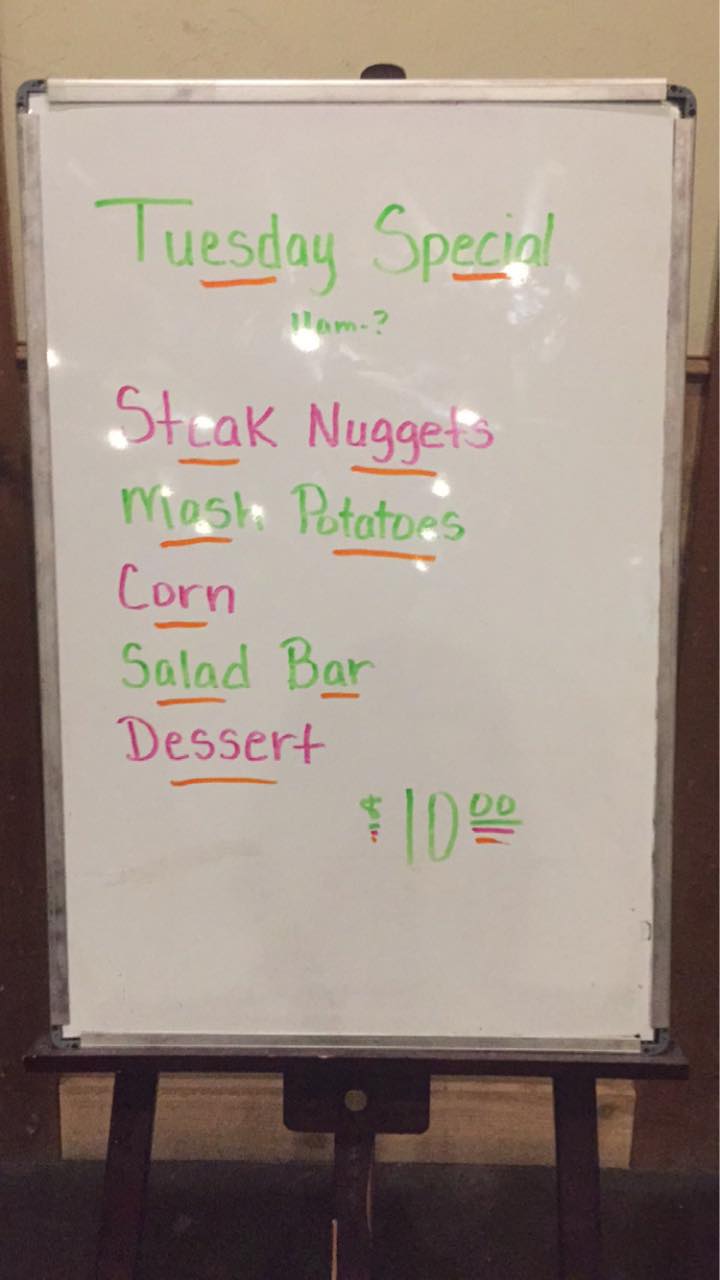 Tuesday Special
11am-?
Steak Nuggets
Mash Potatoes
Corn
Salad Bar
Dessert
$10.00